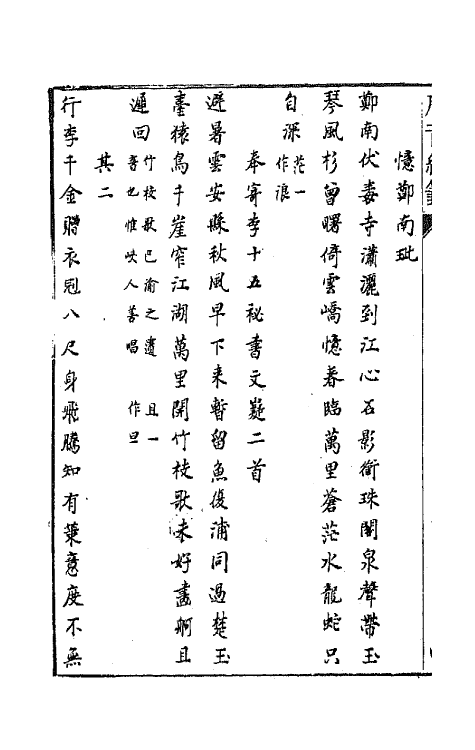 憶鄭南玭
鄭南伏毒寺瀟灑到江心石影銜珠閣泉聲帶玉
琴風杉曾曙倚雲嶠憶春臨萬里蒼茫水龍蛇只
自深茫一作浪
奉寄李十五祕書文嶷二首
避暑雲安縣秋風早下來暫留魚復浦同過楚王
臺猿鳥千崖窄江湖萬里開竹枝歌未好畫舸且
遲回竹枝歌巴渝之遺音也惟峽人善唱 且一作旦
其二
行李千金贈衣冠八尺身飛騰知有策意度不無